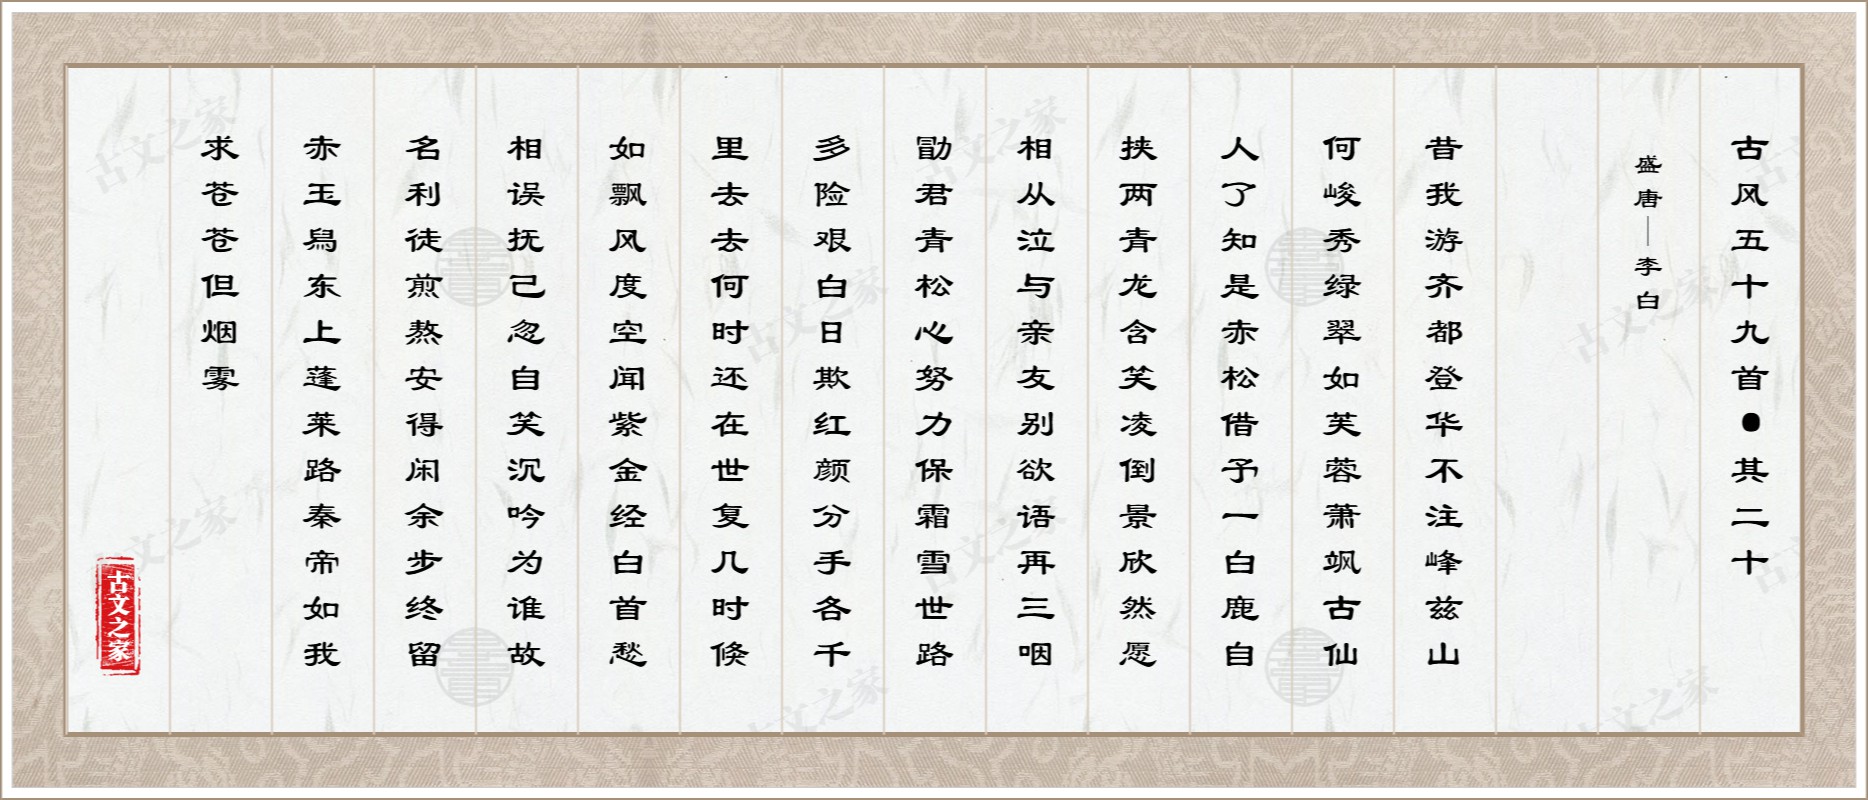 古风五十九首·其二十
盛唐—李白
昔我游齐都登华不注峰兹山
何峻秀绿翠如芙蓉萧飒古仙
人了知是赤松借予一白鹿自
挟两青龙含笑凌倒景欣然愿
相从泣与亲友别欲语再三咽
勖君青松心努力保霜雪世路
多险艰白日欺红颜分手各千
里去去何时还在世复几时倏
如飘风度空闻紫金经白首愁
相误抚己忽自笑沉吟为谁故
名利徒煎熬安得闲余步终留
赤玉舄东上蓬莱路秦帝如我
求苍苍但烟雾
古文之家